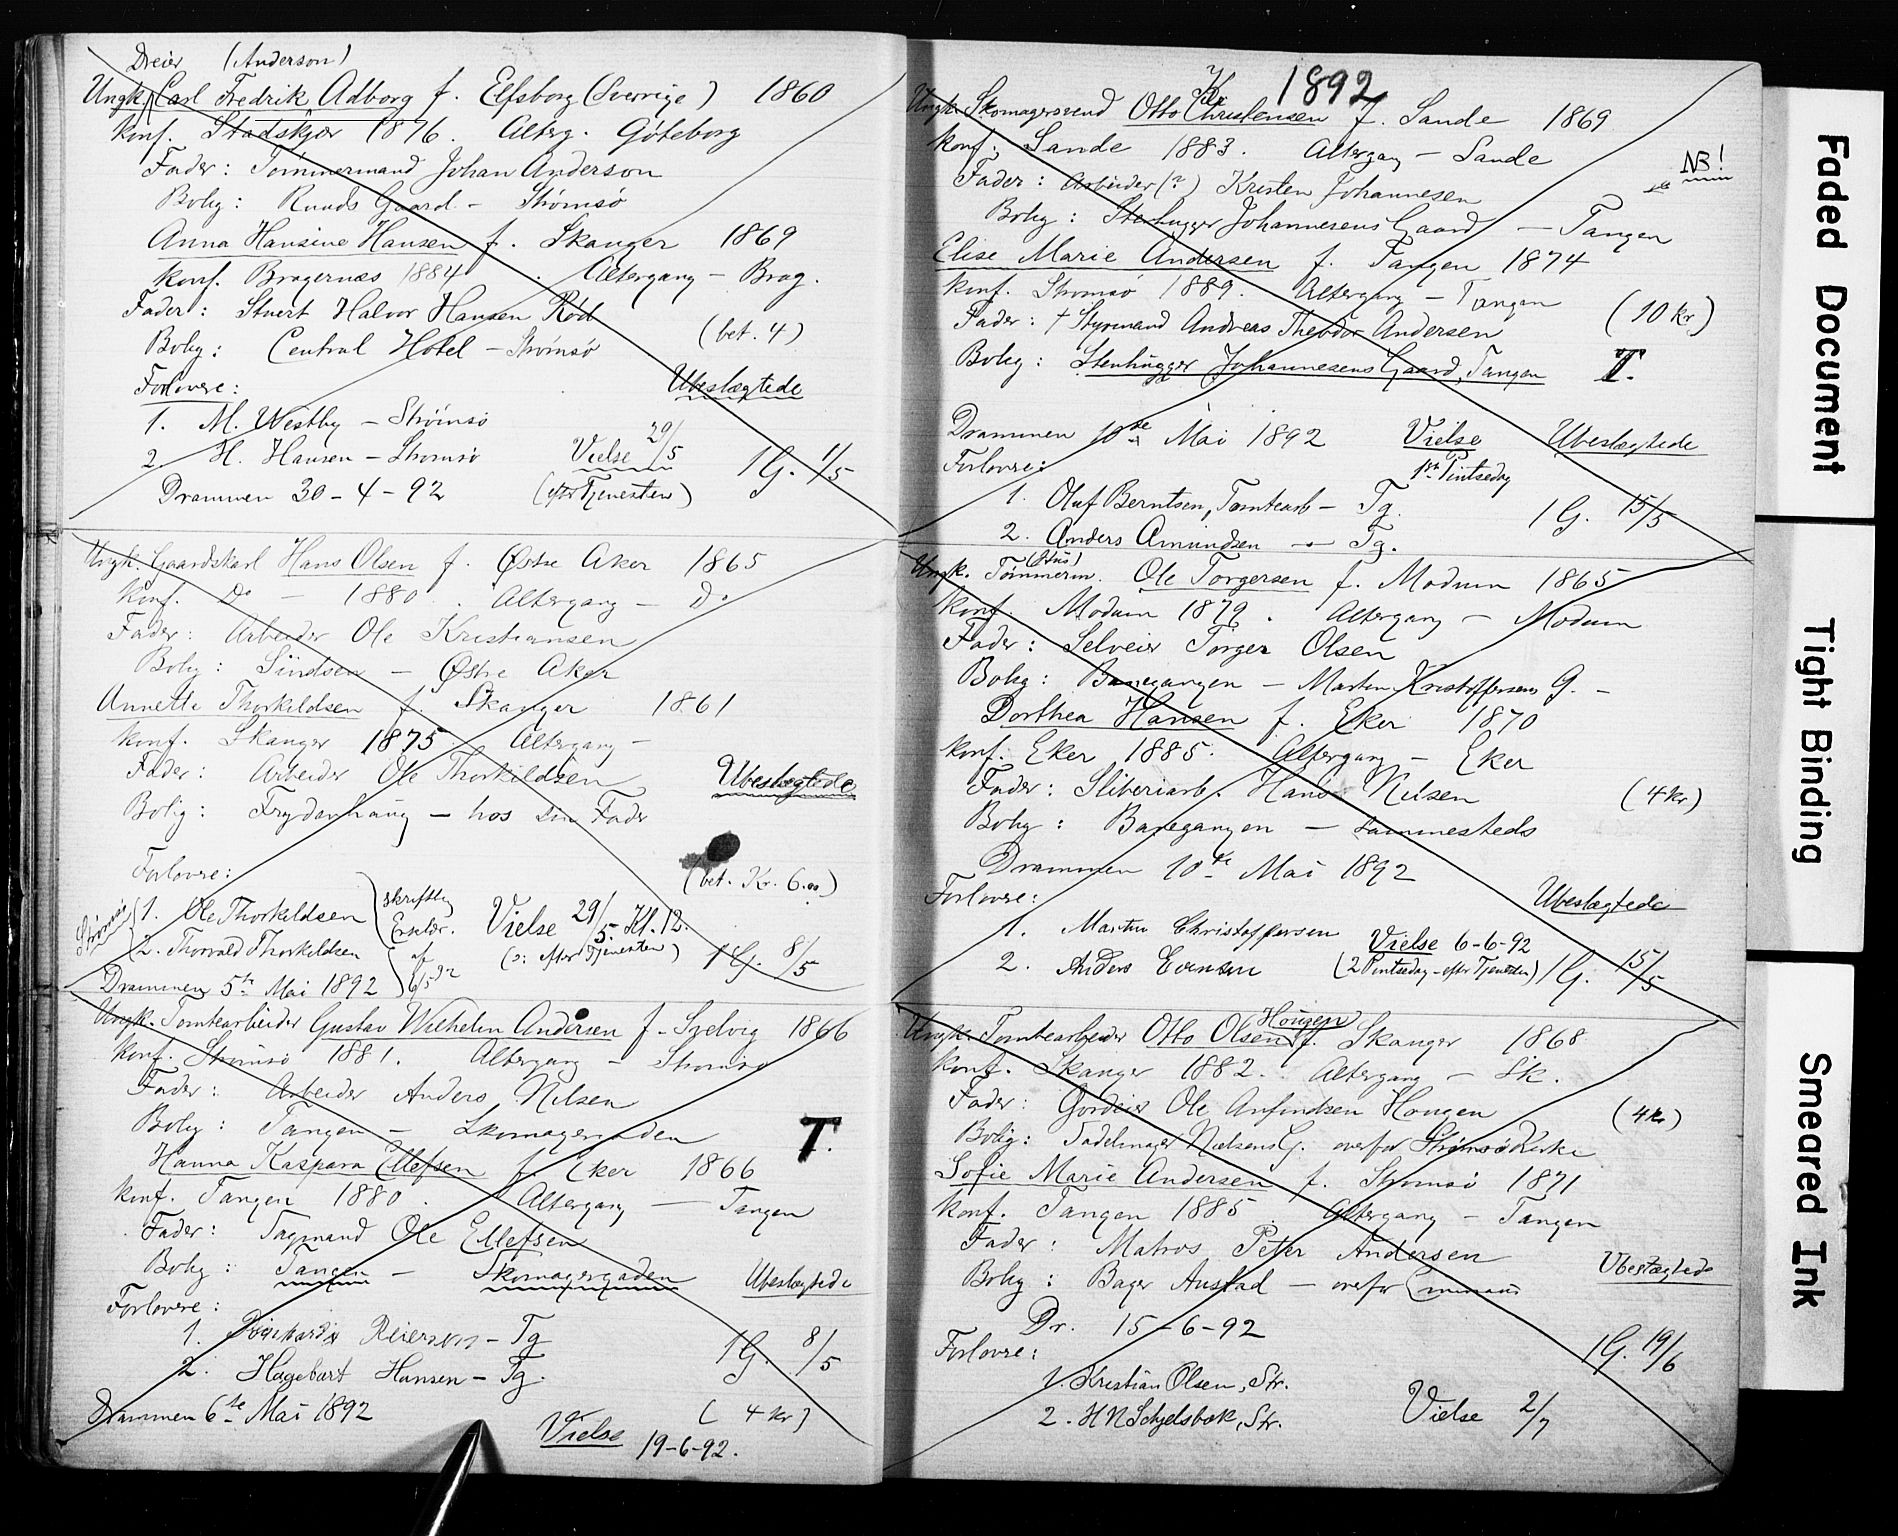 Dreier (Anderson)
Ungk. Carl Fredrik Adborg f. Elfsborg (Sverrige) 1860
Konf. Stadskjær 1876. Alterg. Göteborg
Fader: Tømmermand Johan Anderson
Bolig: Ruuds Gaard - Strømsø
Anna Hansine Hansen f. Skauger 1869
Konf. Bragernæs 1884. Altergang - Brag.
Fader: Stuert Halvor Hansen Rød
(bet. 4)
Bolig: Central Hotel - Strømsø
Forlovere: Ubeslægtede
1. M. Westby - Strømsø
2. H. Hansen - Strømsø Vielse 29/5 1 G. 1/5
Drammen 30-4-92 (efter Tjenesten)
Ungk. Gaardskarl Hans Olsen f. Østre Aker 1865
Konf. Do - 1880. Altergang - Do
Fader: Arbeider Ole Kristiansen
Bolig: - Østre Aker
Annette Thorkildsen f. Skauger 1861
Konf. Skauger 1875 Altergang -
Fader: Arbeider Ole Thorkildsen Ubeslægtede
Bolig: Frydenhaug - hos sin Fader
Forlovere: (bet. Kr. 6.00)
Strømsø 1. Ole Thorkildsen skriftlig
2. Thorvald Thorkildsen Erklær. af 6/5 92
Vielse 29/5 - Kl. 12.
(o: efter Tjenesten) 1 G. 8/5
Drammen 5te Mai 1892
Ungk. Tomtearbeider Gustav Wilhelm Andersen f. Svelvig 1866
Konf. Strømsø 1881. Altergang - Strømsø
Fader: Arbeider Anders Nilsen
Bolig: Tangen - Skomagergaden T.
Hanna Kaspara Ellefsen f. Eker 1866
Konf. Tangen 1880. Altergang - Tangen
Fader: Dagmand Ole Ellefsen
Bolig: Tangen - Skomagergaden Ubeslægtede
Forlovere:
1. Reiersen - Tg
2. Hagebart Hansen - Tg.
1 G. 8/5
Drammen 6te Mai 1892 (4 kr)
Vielse 19-6-92.
1892
Ungk. Skomagersvend Otto Christensen f. Sande 1869
Konf. Sande 1883. Altergang - Sande
NB!
Fader: Arbeider (?) Kristen Johannesen
Bolig: Stenhugger Johannesens Gaard - Tangen
Elise Marie Andersen f. Tangen 1874
Konf. Strømsø 1889. Altergang - Tangen
(10 kr)
Fader: † Styrmand Andreas Theodor Andersen
Bolig: Stenhugger Johannesens Gaard, Tangen T.
Drammen 10de Mai 1892 Vielse Ubeslægtede
Forlovere: 1ste Pintsedag
1. Olaf Berntsen, Tomtearb - Tg.
1 G. 15/5
2. Anders Amundsen - Tg.
(Hus)
Ungk. Tømmerm. Ole Torgersen f. Modum 1865
Konf. Modum 1879. Altergang - Modum
Fader: Selveier Torger Olsen
Bolig: Banegangen - Martin Kristoffersens G. -
Dorthea Hansen f. Eker 1870
Konf. Eker 1885. Altergang - Eker
Fader: Sliberiarb. Hans Nilsen (4 kr)
Bolig: Banegangen - sammesteds
Drammen 10de Mai 1892
Forlovere: Ubeslægtede
1. Martin Christoffersen Vielse 6-6-92
2. Anders Evensen (2 Pintsedag - efter Tjenesten) 1 G. 15/5
Ungk. Tomtearbeider Otto Olsen Hougen f. Skauger 1868
Konf. Skauger 1882. Altergang - Sk.
Fader: Gordeier Ole Anfindsen Hougen (4 kr)
Bolig: Sadelmager Nielsens G. overfor Strømsø Kirke
Sofie Marie Andersen f. Strømsø 1871
Konf. Tangen 1885. Altergang - Tangen
Fader: Matros Peter Andersen
Bolig: Bager Austad - overfor Ubeslægtede
Dr. 15-6-92
Forlovere: 1 G. 19/6
1. Kristian Olsen, Str.
2. H N Schjelsbæk, Str. Vielse 2/7
Faded Document
Tight Binding
Smeared Ink